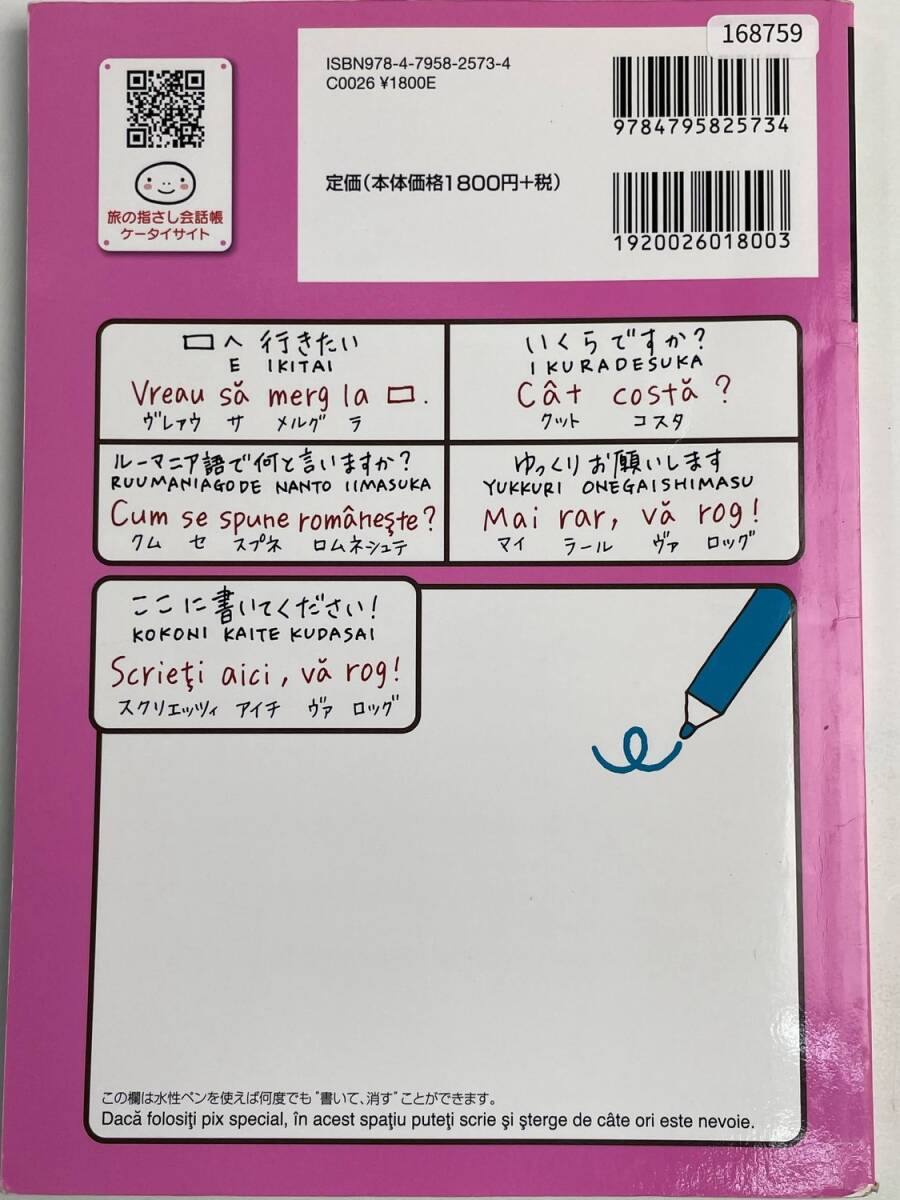 168759
ISBN978-4-7958-2573-4
C0026 ¥1800E
9784795825734
定価(本体価格1800円+税)
1920026018003
旅の指さし会話帳
ケータイサイト
□へ 行きたい
E IKITAI
Vreau să merg la □.
ヴレァウ サ メルグ ラ
いくらですか?
IKURADESUKA
Cât costă ?
クット コスタ
ルーマニア語で何と言いますか?
RUUMANIAGO DE NANTO IIMASUKA
Cum se spune româneşte?
クム セ スプネ ロムネシュテ
ゆっくりお願いします
YUKKURI ONEGAISHIMASU
Mai rar, vă rog!
マイ ラール ヴァ ロッグ
ここに書いてください!
KOKONI KAITE KUDASAI
Scrieţi aici, vă rog!
スクリエッツィ アイチ ヴァ ロッグ
この欄は水性ペンを使えば何度でも"書いて、消す"ことができます。
Dacă folosiţi pix special, în acest spaţiu puteţi scrie şi şterge de câte ori este nevoie.